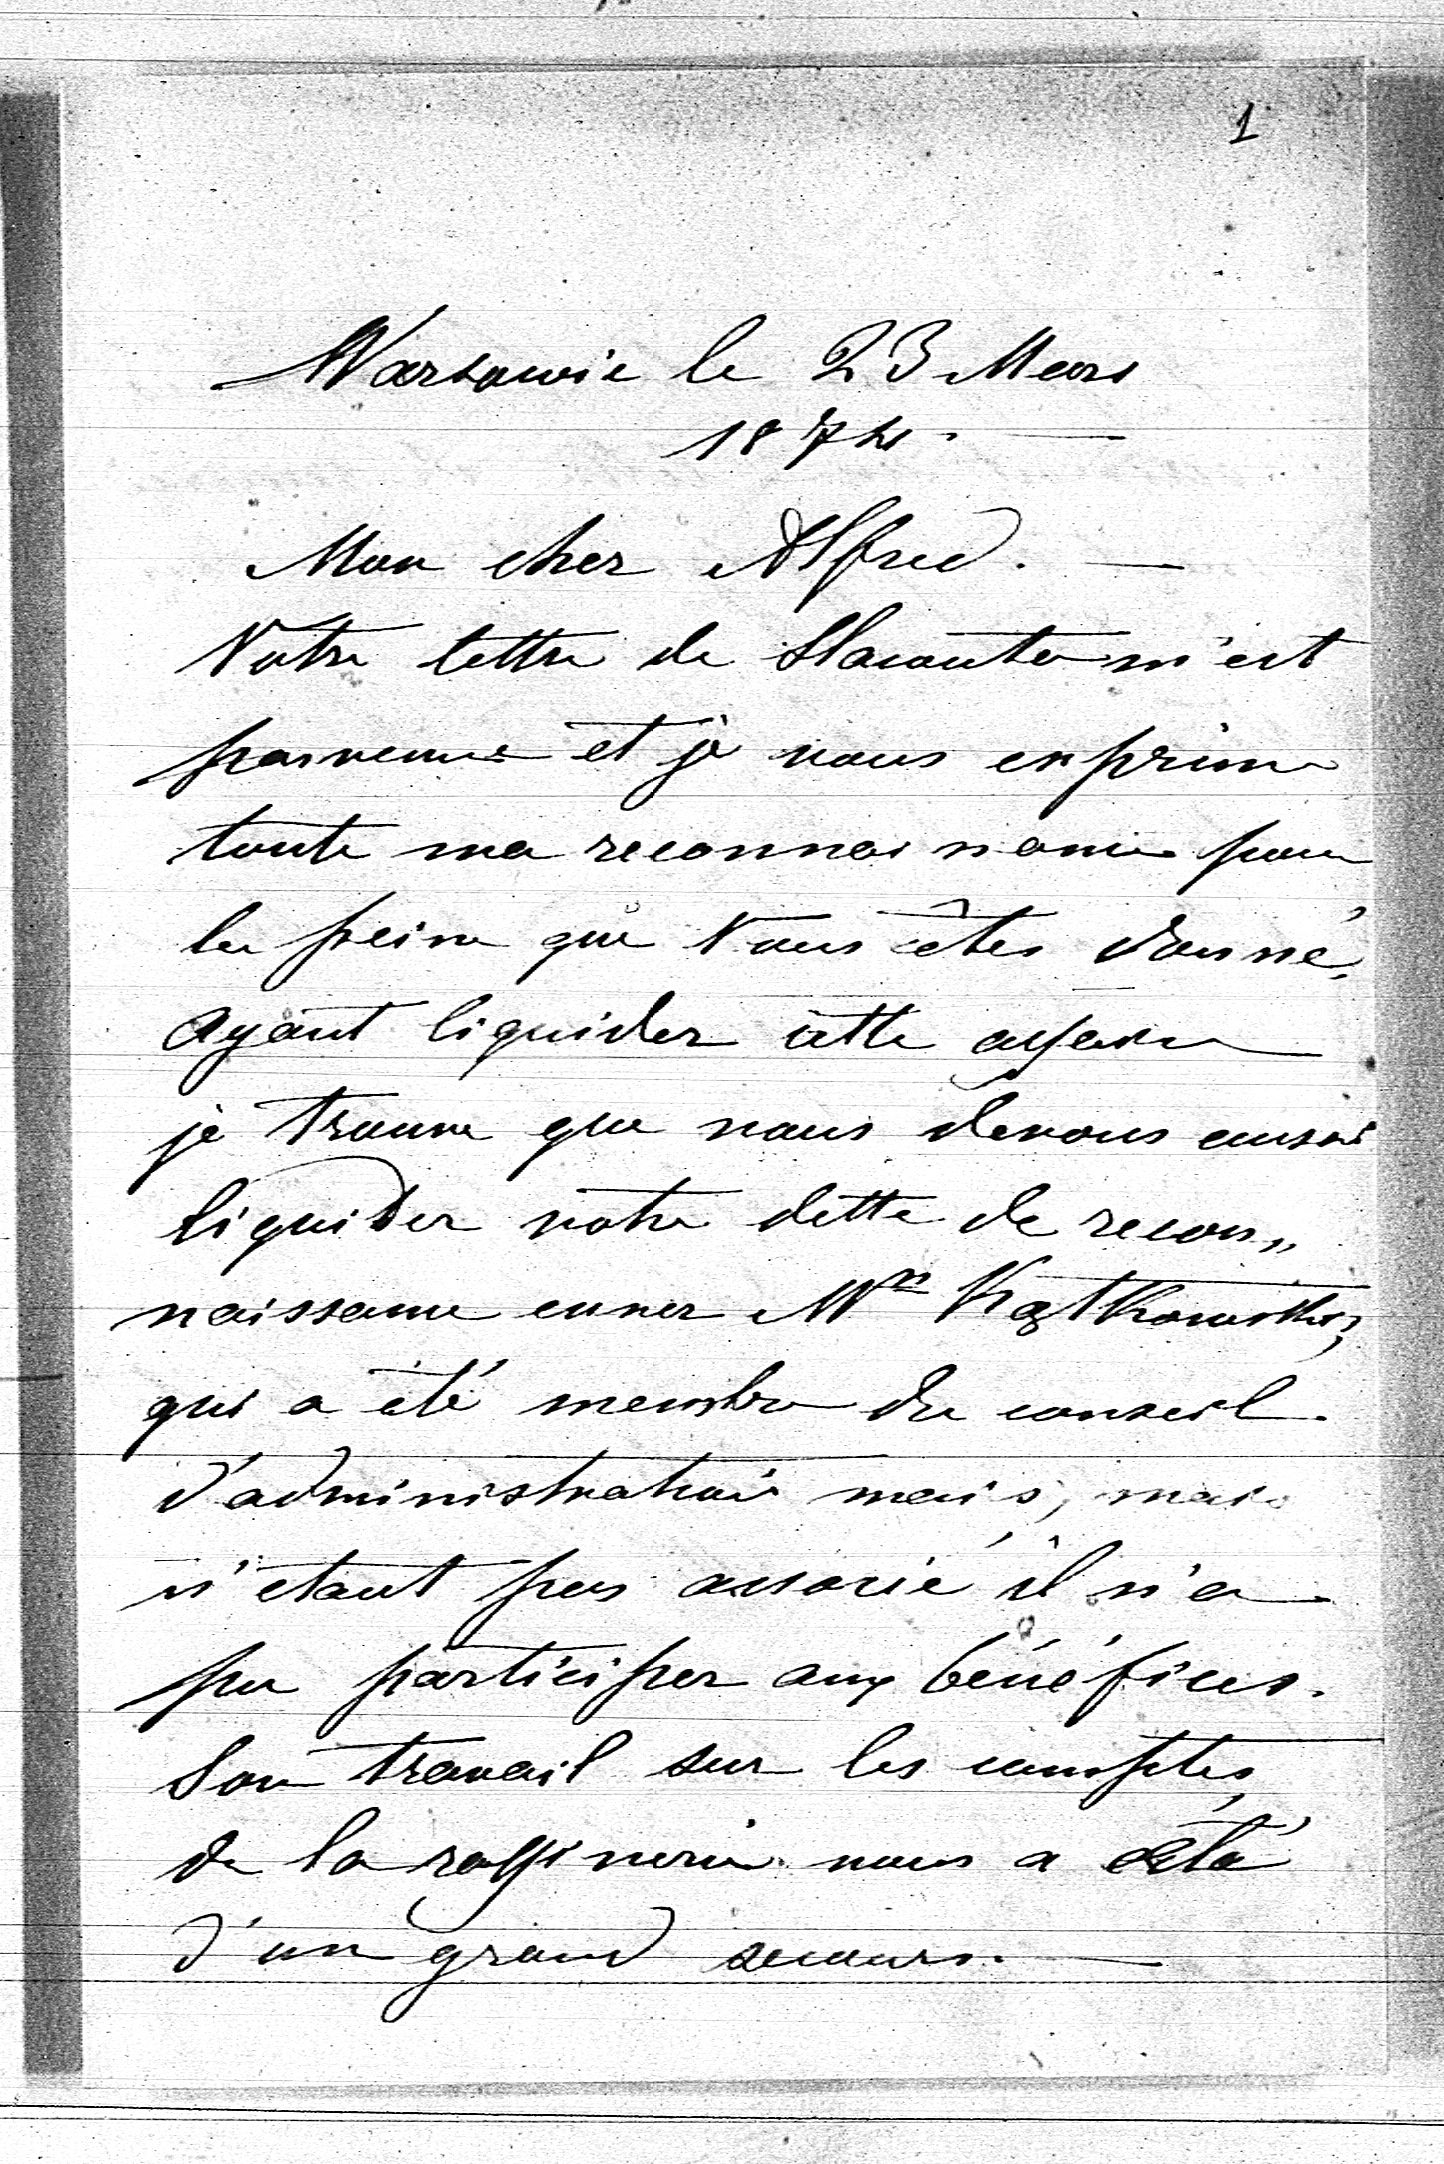 1
Varsowie le 23 Mars
1874. —
Mon cher Alfred. —
Votre lettre de m'est
parvenue et je vous exprime
toute ma reconnaissance pour
la peine que Vous êtes donné,
ayant liquider cette affaire
je trouve que nous devons aussi
liquider notre dette de recon„
naissance enver Mr
qui a été membre du conseil
d'administration mais, mais
n'etant pas associé il n'a
pu participer aux bénéfices.
Son travail sur les comptes
de la raffinerie nous a été
d'un grand secours. —